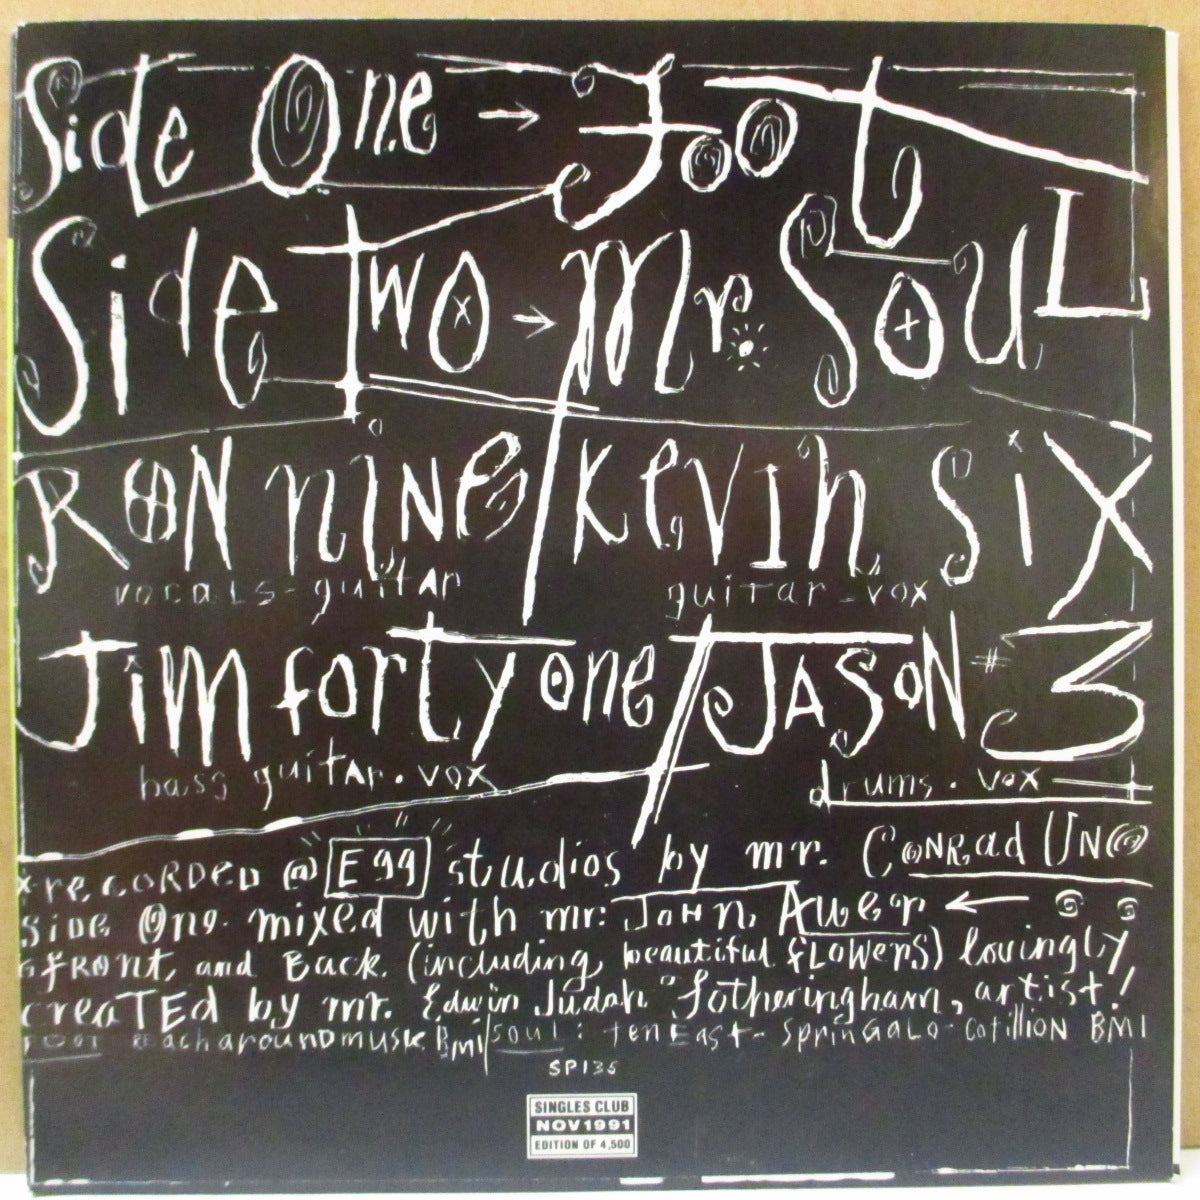 Side One → Foot
Side Two → Mr. SouL
RON NINE / Kevin Six
vocals - guitar guitar - vox
Jim forty one / JASON #3
bass guitar. vox drums. vox
recORDED @ Egg studios by mr. CONRad UNO
SiDe One. mixed with mr. JoHn, Auer ←
front, and Back. (including, beautiful flowers) lovingly
creaTEd by mr. Edwin Judah "fotheringham, artist!
FOOT Reacharoundmusic BMI/Soul: tenEast - SprinGALo - CotillION BMI
SP135
SINGLES CLUB
NOV 1991
EDITION OF 4,500